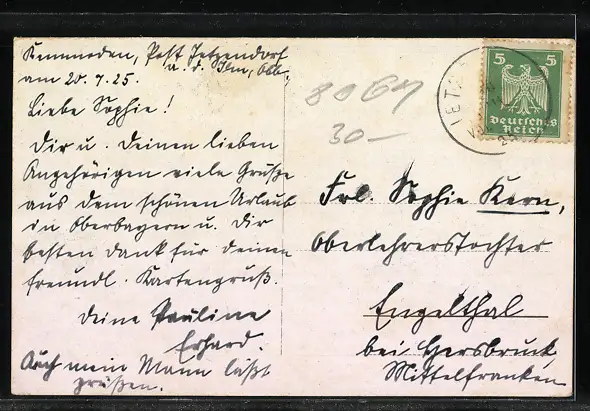 Kemmoden, Post Jetzendorf
a. d. Ilm, Obb.,
am 20.7.25.
Liebe Sophie!
Dir u. Deinen lieben
Angehörigen viele Grüße
aus dem schönen Urlaub
in Oberbayern u. Dir
besten Dank für Deinen
freundl. Kartengruß.
Deine Pauline
Erhard.
Auch mein Mann läßt
grüßen.
8064
30—
JETZ
5 5
Deutsches
Reich
Frl. Sophie Kern,
Oberlehrerstochter
Engelthal
bei Hersbruck,
Mittelfranken